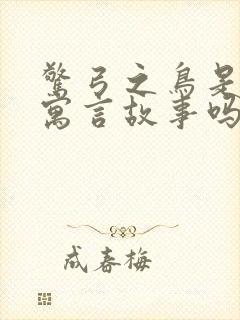 惊弓之鸟是
寓言故事吗
成春梅